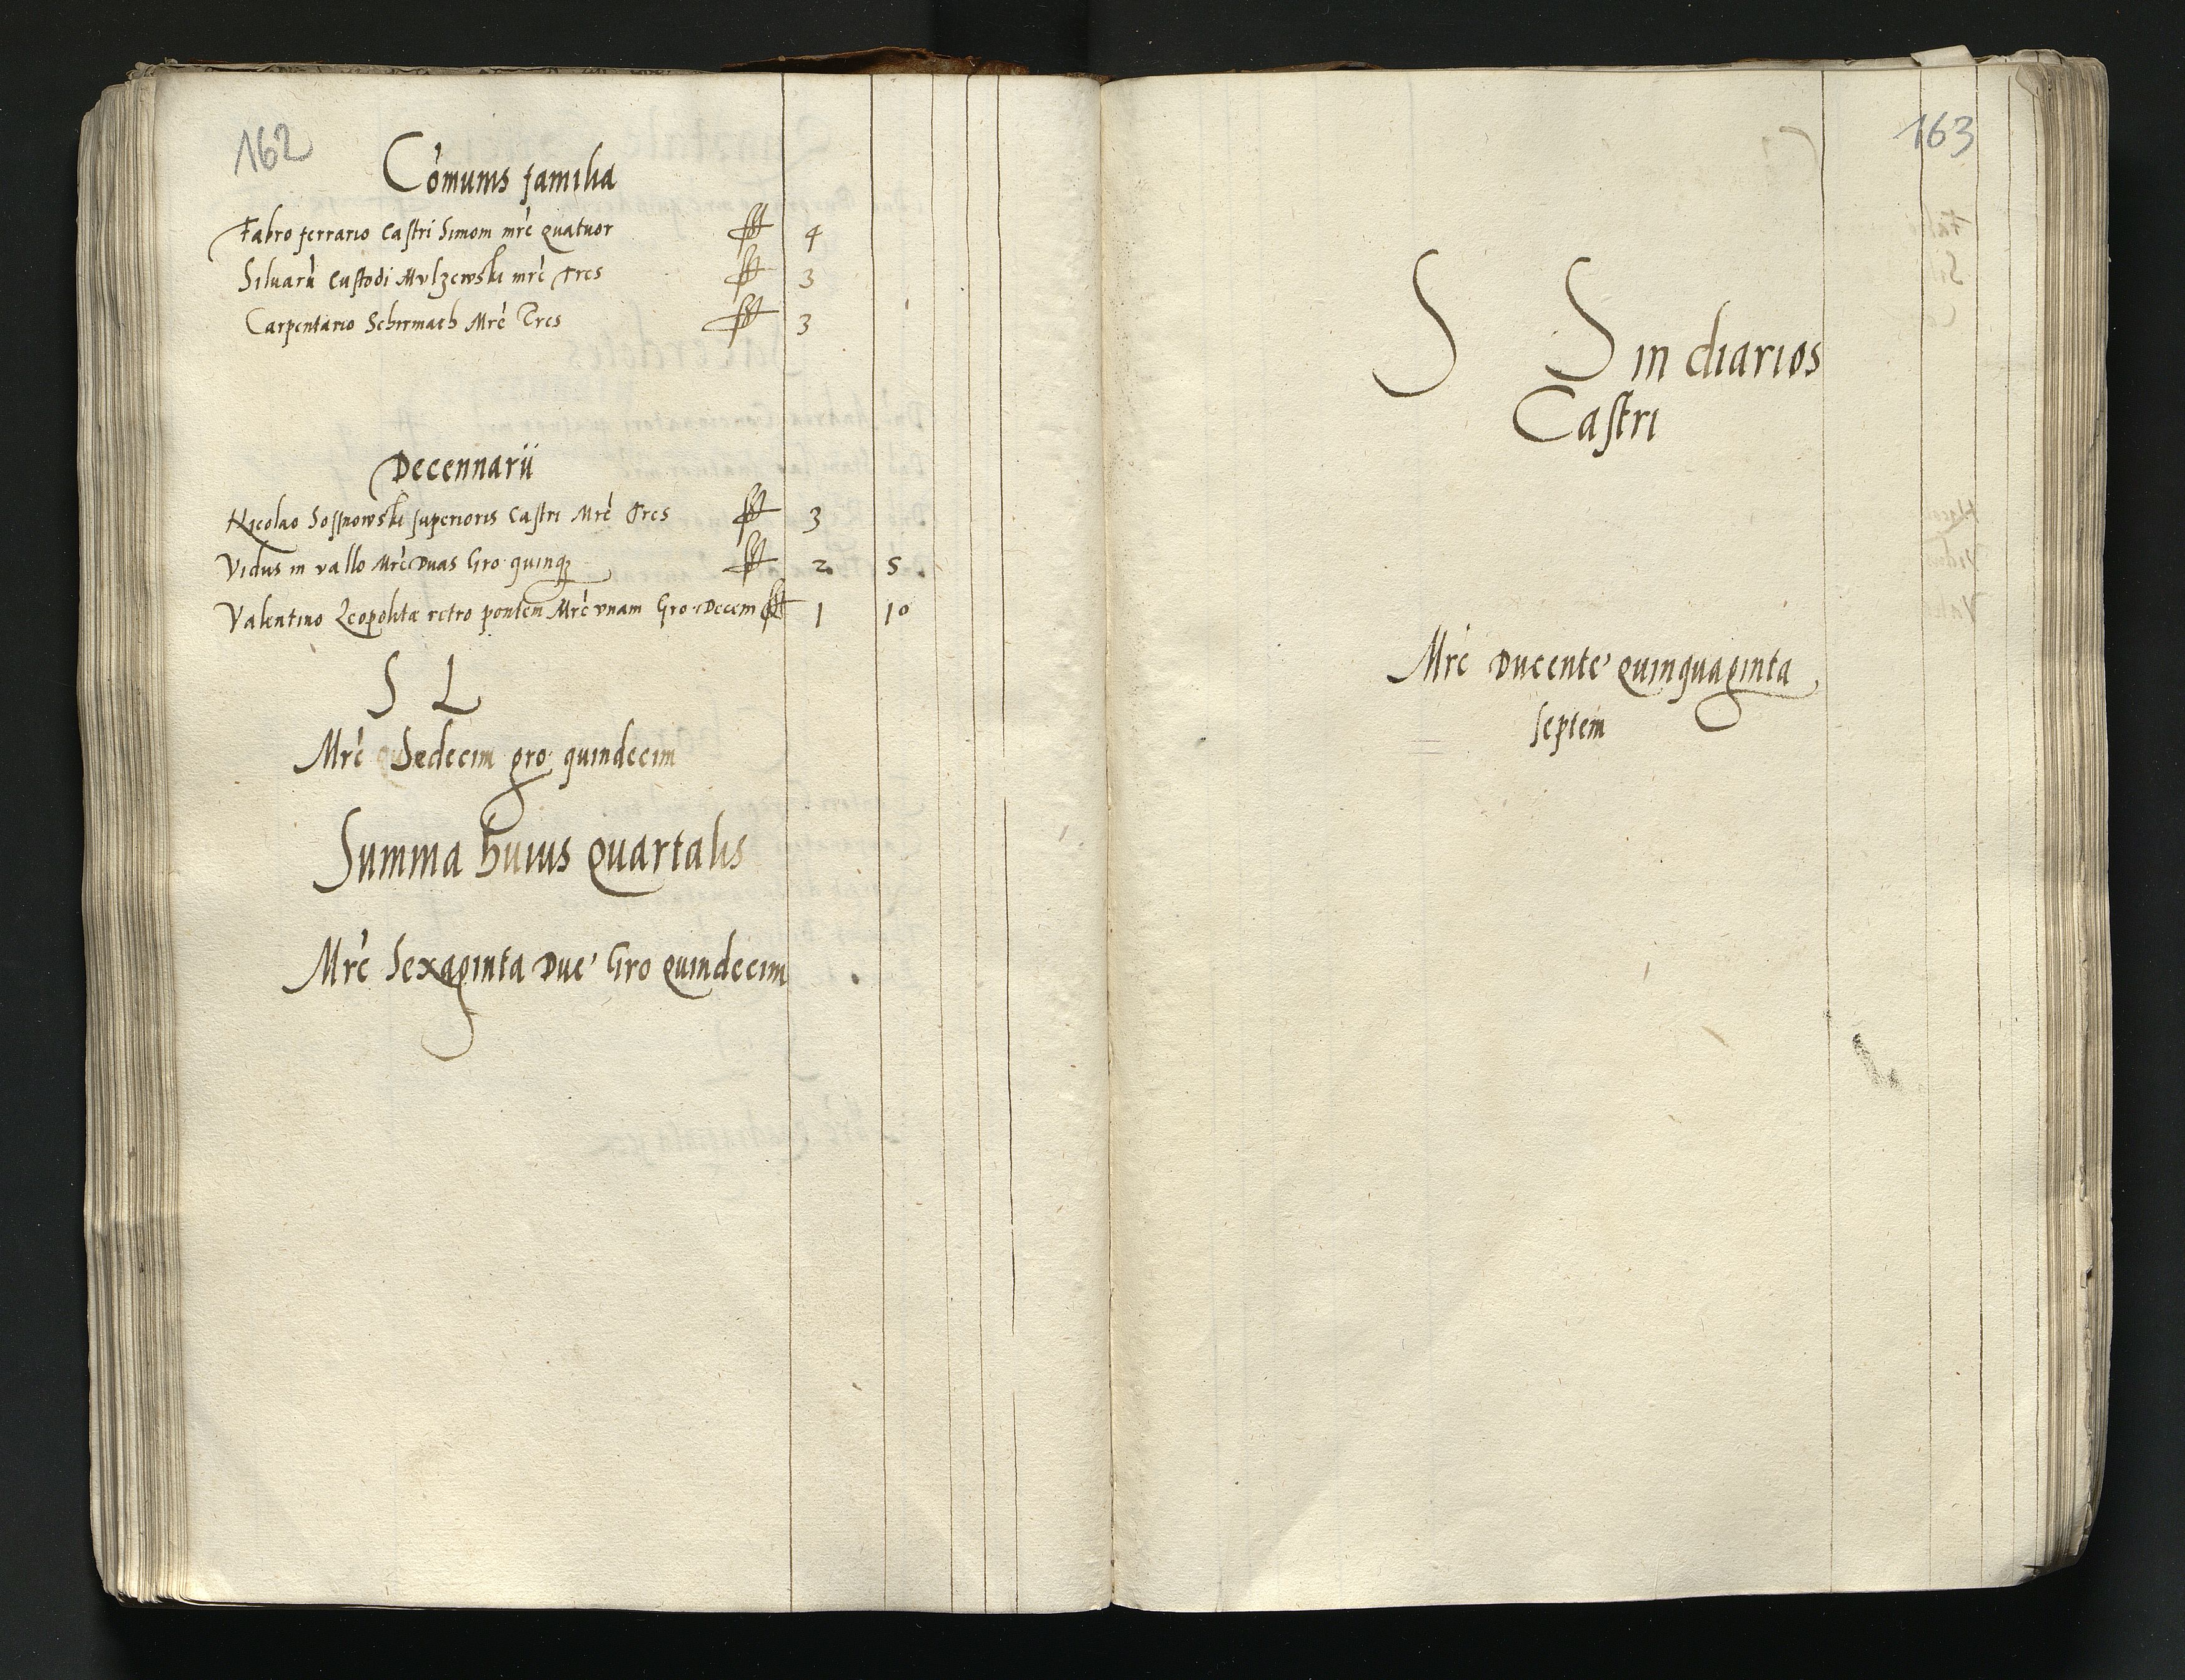 162
Cõmunis familia
Fabro ferrario Castri Simom mrc̃ quatuor fl 4
Siluarũ Custodi Mulzewski mrc̃ Tres fl 3
Carpentario Schirmach Mrc̃ Tres fl 3
Decennarii
Nicolao Sossnowski superioris Castri Mrc̃ Tres fl 3
Vidus in vallo Mrc̃ Duas Gro quinq3 fl 2 5
Valentino Leopolitæ retro pontem Mrc̃ vnam Gro Decem fl 1 10
S L
Mrc̃ Sedecim gro quindecim
Summa huius Quartalis
Mrc̃ Sexaginta Due' Gro Quindecim
163
S S in diarios
Castri
Mrc̃ Ducente' Quinquaginta
septem